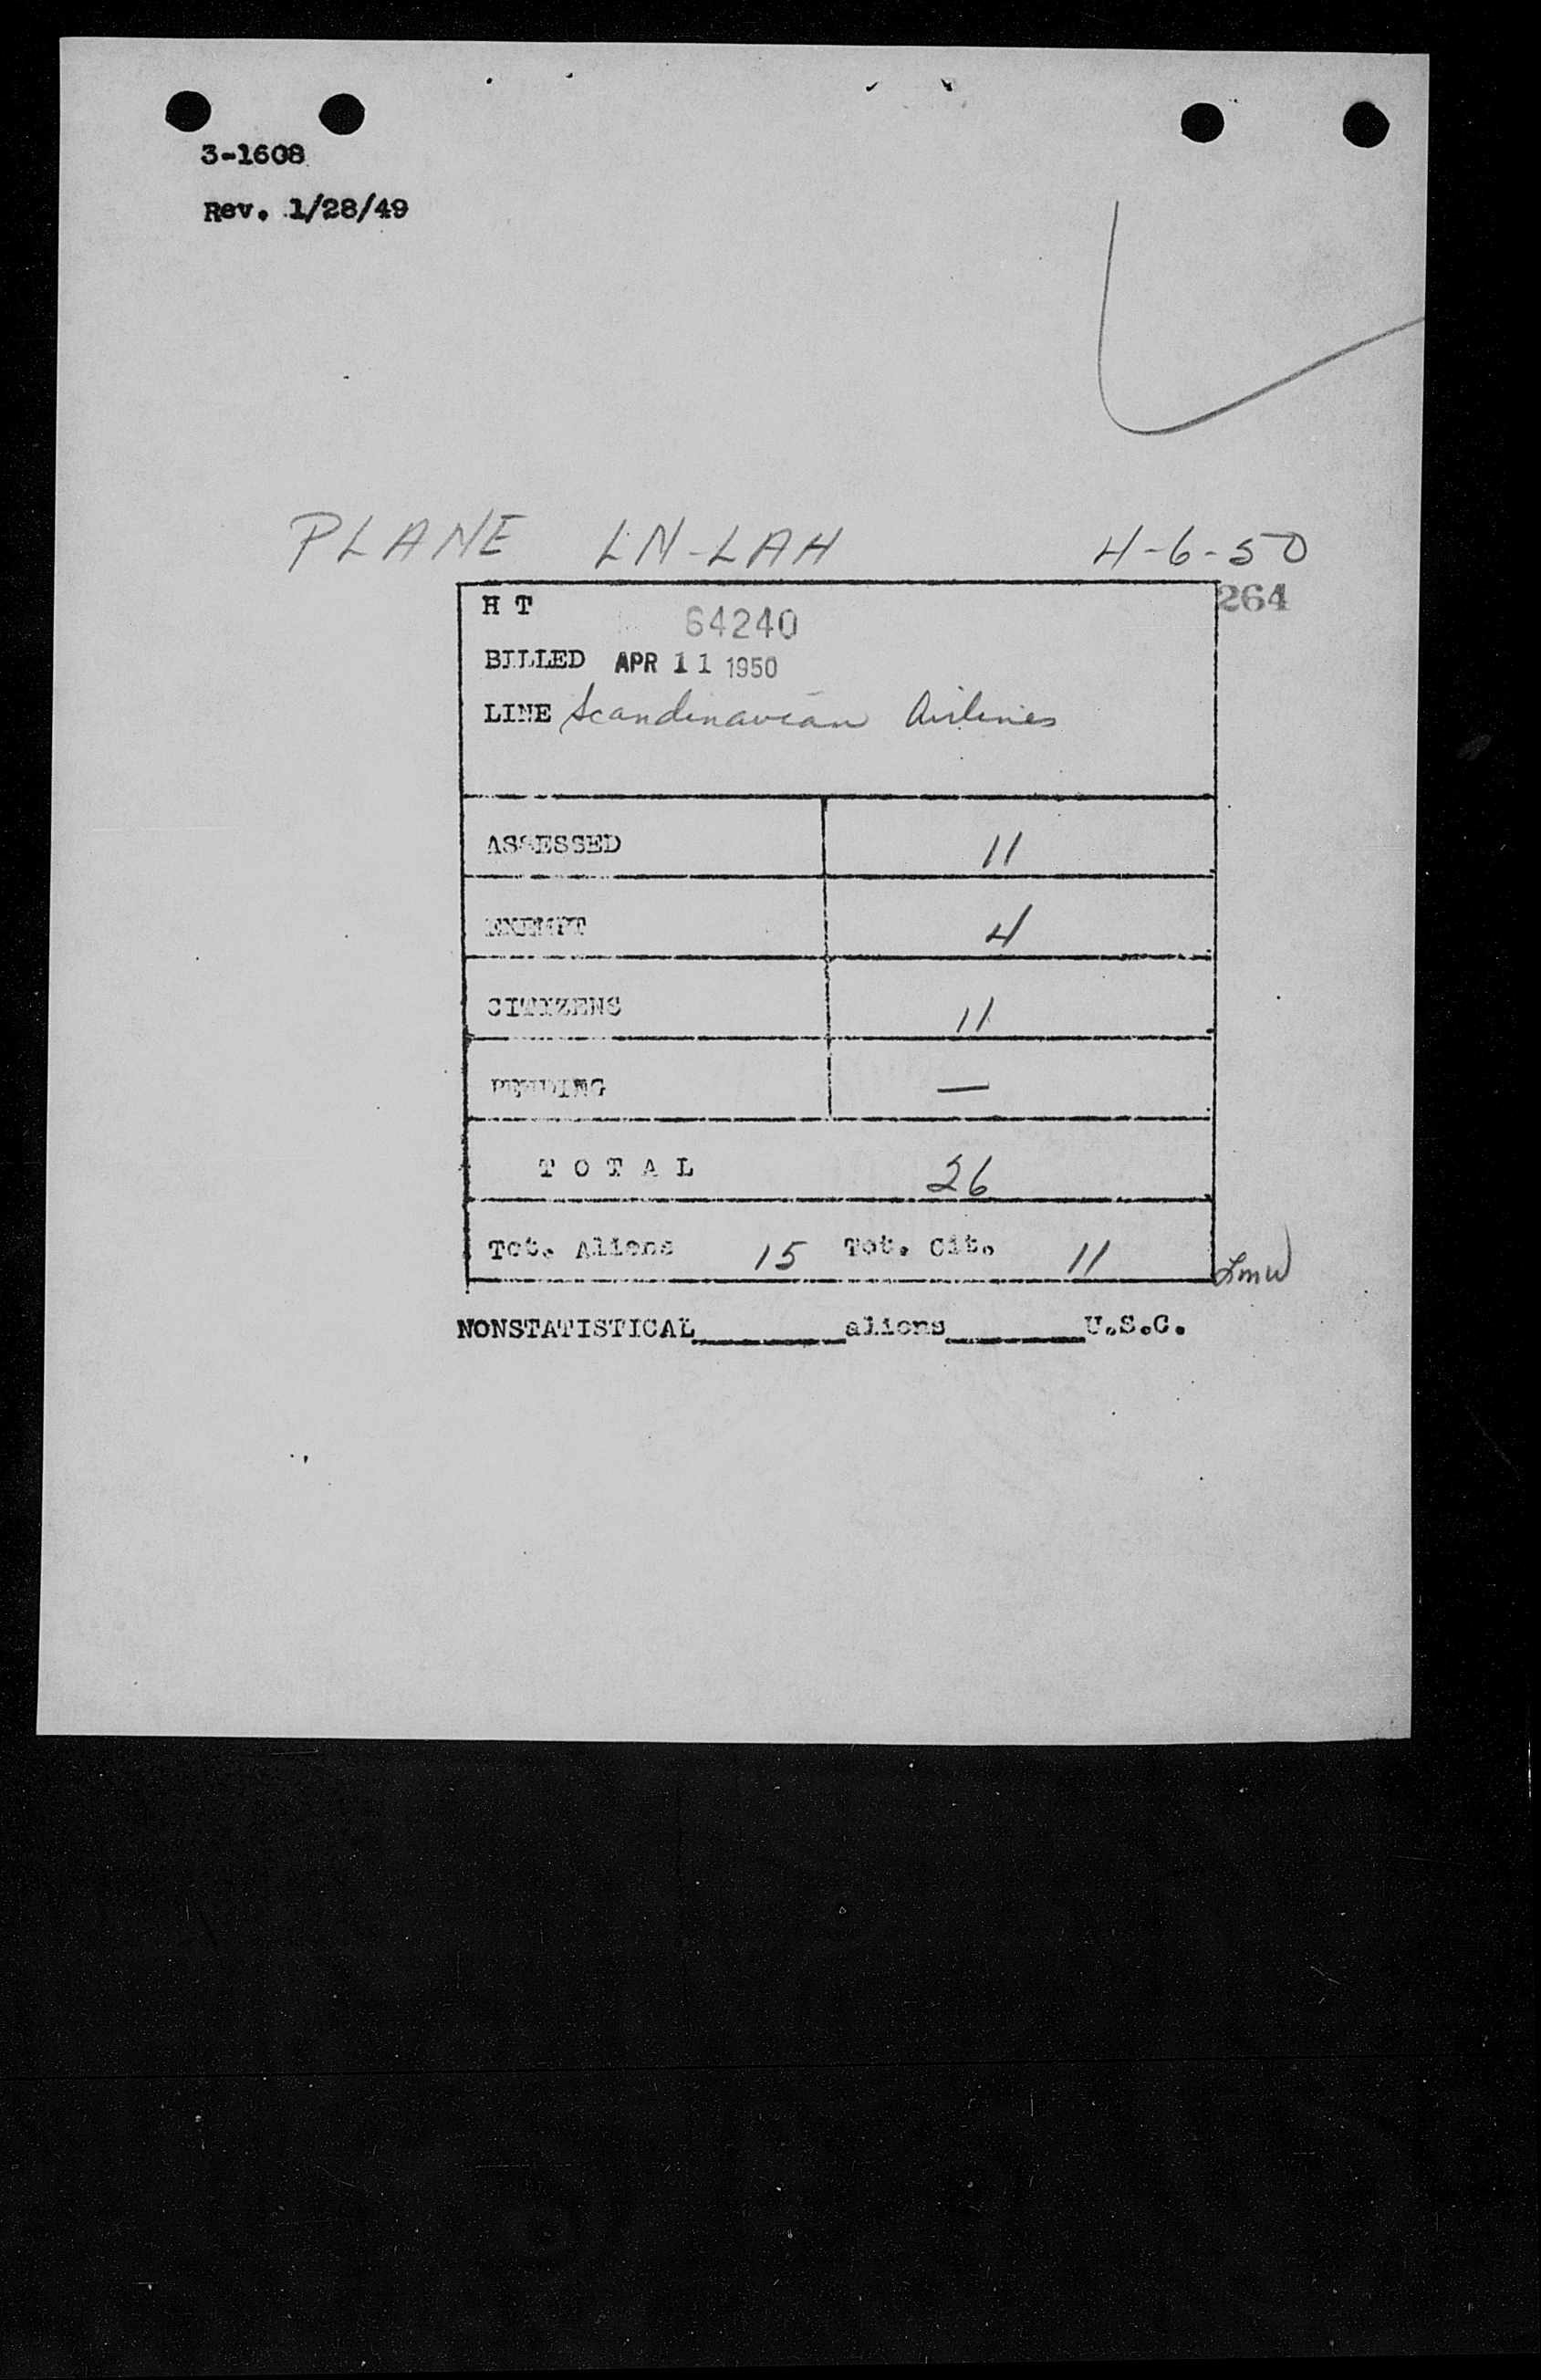 3-1608
Rev. 1/28/49
PLANE LN-LAH 4-6-50
264
H T 64240
BILLED APR 11 1950
LINE Scandinavian Airlines
ASSESSED 11
EXEMPT 4
CITIZENS 11
PENDING —
T O T A L 26
Tot. Aliens 15 Tot. Cit. 11
NONSTATISTICAL______aliens______U.S.C.